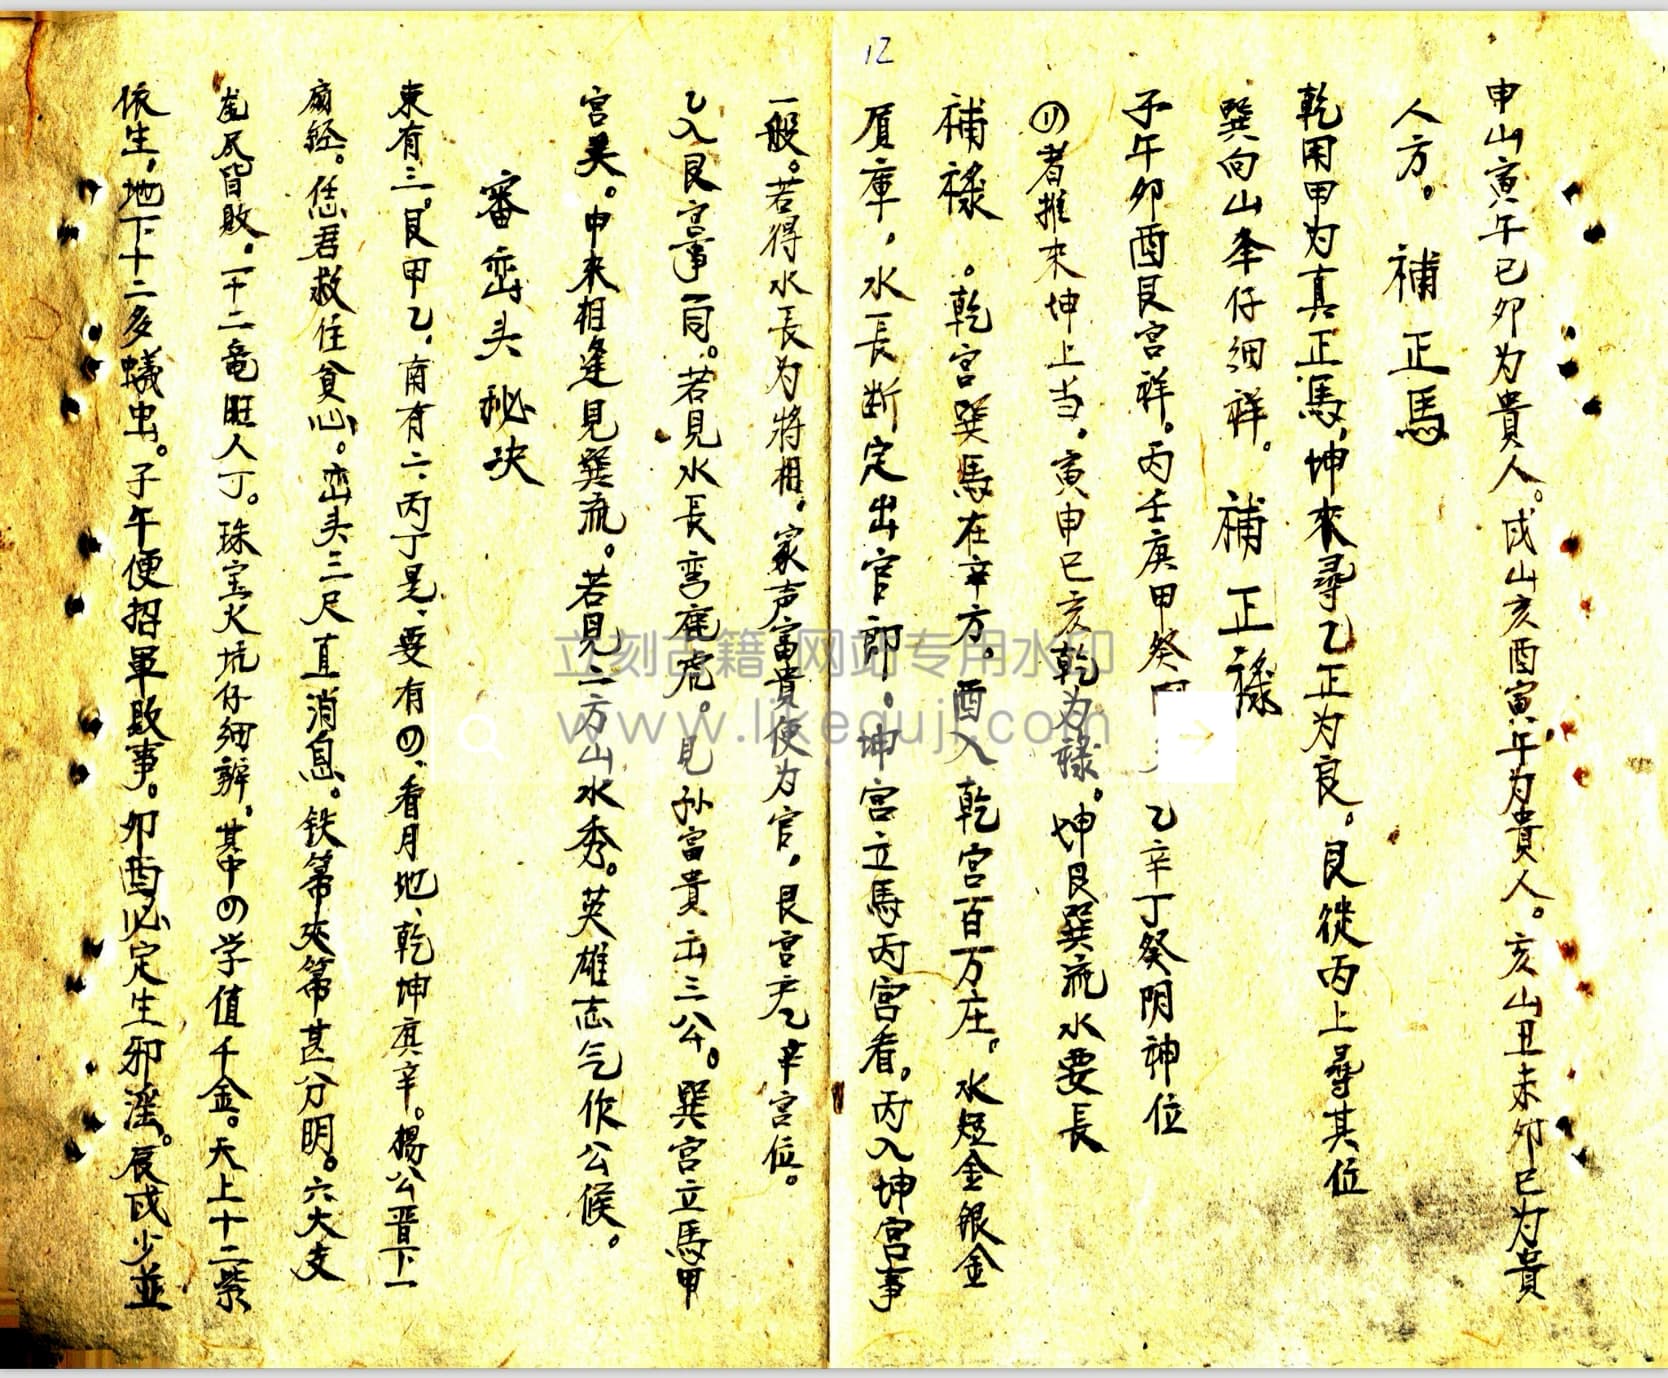 12
申山寅午巳卯为貴人。戌山亥酉寅午为貴人。亥山丑未卯巳为貴
人方。 補正馬
乾用甲为真正馬,坤來尋乙正为良。艮從丙上尋其位
巽向山辛仔细祥。 補正祿
子午卯酉艮宮祥。丙壬庚甲癸 乙辛丁癸阴神位
四者推來坤上当。寅申巳亥乾为祿。坤艮巽流水要長
補祿 。乾宮巽馬在辛方。酉入乾宮百万庄。水短金銀金
庫,水長断定出官郎。坤宮立馬丙宮看,丙入坤宮事
一般。若得水長为將相。家声富貴便为官,艮宮 乙辛宮位。
乙入艮宮事一同。若見水長弯 虎。見孙富貴出三公。巽宮立馬甲
宮美。申來相逢見巽流。若見二方山水秀。英雄志气作公候。
審峦头秘决
東有三。艮甲乙,南有二丙丁是,要有四,看月地,乾坤庚辛。楊公晋下一
扇經。恁君救住貧心。峦头三尺直消息。铁箒夾箒甚分明。六大支
尾皆敗。一十二竜旺人丁。珠宝火坑仔细辨。其中四学值千金。天上十二紫
依生,地下十二多蟻虫。子午便招軍敗事。卯酉必定生邪淫。辰戌少並
立刻古籍 网站专用水印
www.likeguji.com